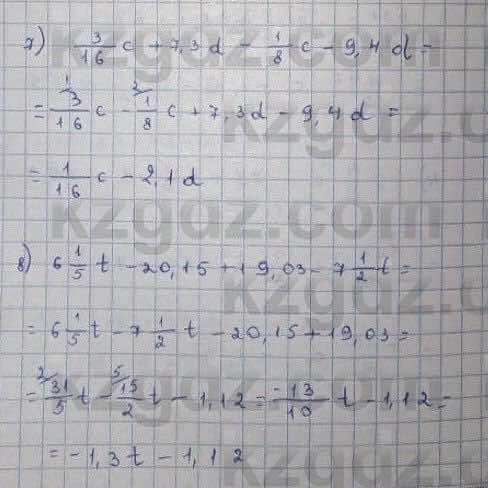 7) 3/16 c + 7,3d - 1/8 c - 9,4d =
= 3/16 c - 1/8 c + 7,3d - 9,4d =
= 1/16 c - 2,1d
8) 6 1/5 t - 20,15 + 19,03 - 7 1/2 t =
= 6 1/5 t - 7 1/2 t - 20,15 + 19,03 =
= 31/5 t - 15/2 t - 1,12 = -13/10 t - 1,12 =
= -1,3t - 1,12
kzgdz.com